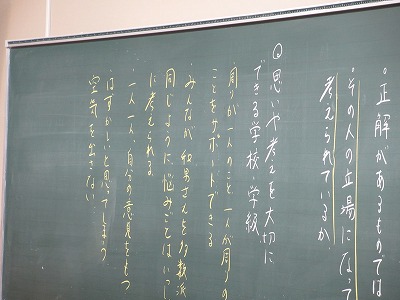 ・正解があるものでは
・その人の立場になって
考えられているか
◎思いや考えを大切に
できる学校、学級
・周りが一人のこと、一人が周りの
ことをサポートできる
・みんなが
同じように、悩みごとは
に考えられる
・一人一人、自分の意見をもつ
・はずかしいと思ってしまう
空気を出さない